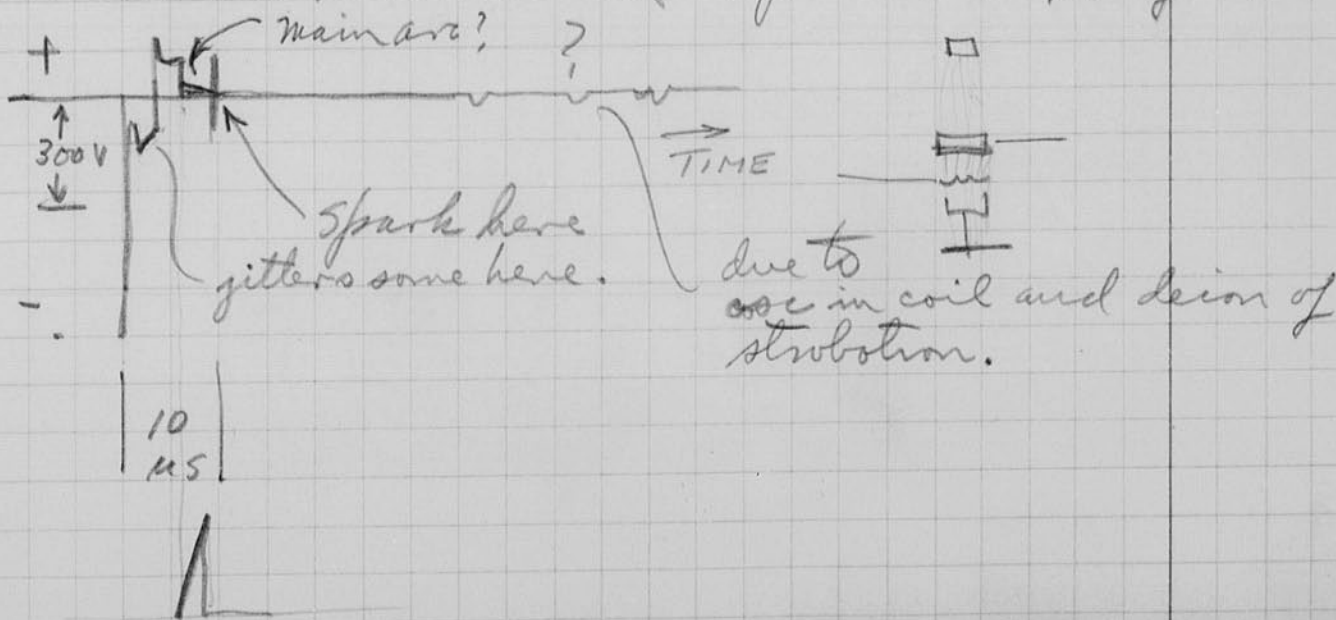 main arc?
?
+
300 V
TIME
Spark here
jitters some here.
due to
osc in coil and deion of
strobotron.
-
10
μs